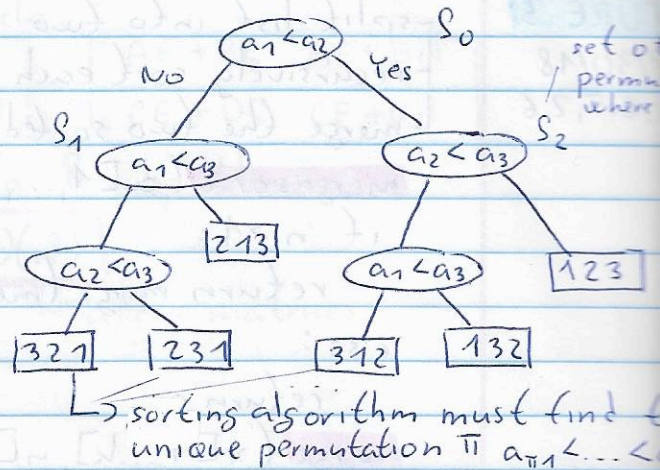 a1<a2 S0
No Yes
set of
permu
where
S1 a1<a3 a2<a3 S2
213
a2<a3 a1<a3 123
321 231 312 132
sorting algorithm must find
unique permutation π aπ1<...<